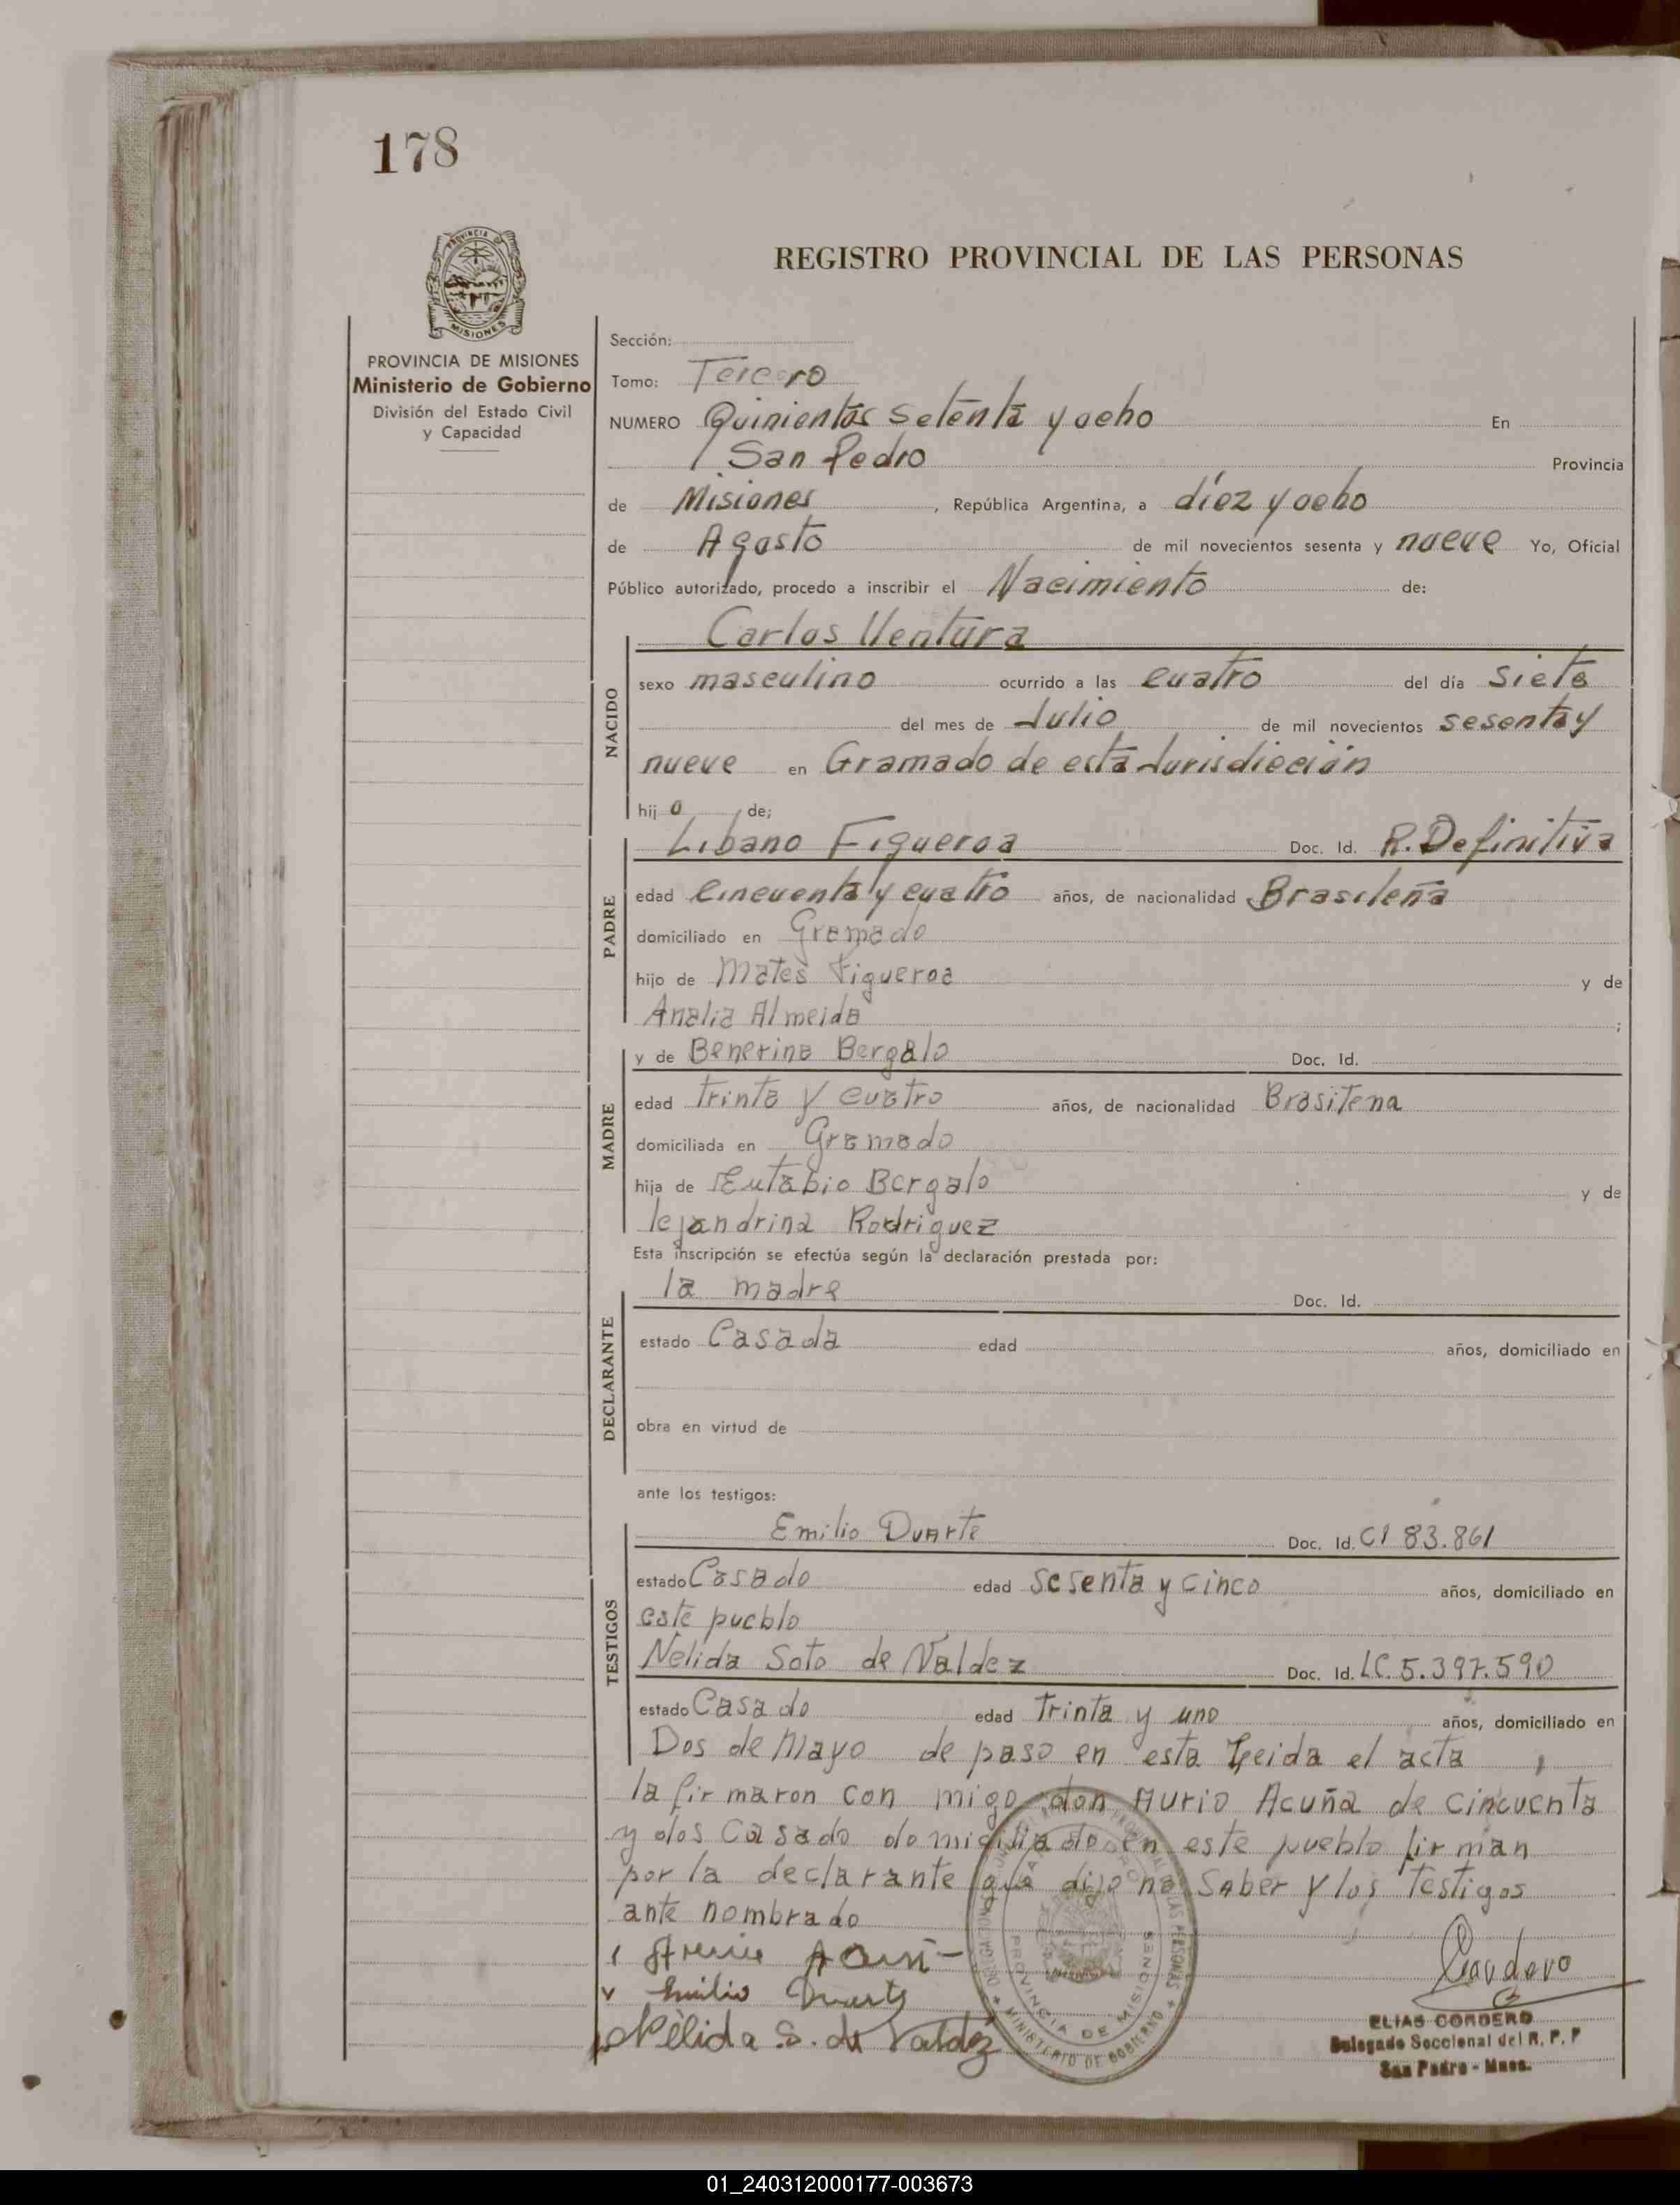 178
REGISTRO PROVINCIAL DE LAS PERSONAS
PROVINCIA DE MISIONES
Ministerio de Gobierno
División del Estado Civil
y Capacidad
Sección:
Tomo: Tercero
NUMERO Quinientos setenta y ocho En
San Pedro Provincia
de Misiones, República Argentina, a díez y ocho
de Agosto de mil novecientos sesenta y nueve Yo, Oficial
Público autorizado, procedo a inscribir el Nacimiento de:
NACIDO
Carlos Ventura
sexo masculino ocurrido a las cuatro del día siete
del mes de Julio de mil novecientos sesenta y
nueve en Gramado de esta Jurisdicción
hijo de;
PADRE
Libano Figueroa Doc. Id. R. Definitiva
edad cincuenta y cuatro años, de nacionalidad Brasileña
domiciliado en Gramado
hijo de Mates Figueroa y de
Analia Almeida ;
MADRE
y de Benerina Bergalo Doc. Id.
edad trinta y cuatro años, de nacionalidad Brasilena
domiciliada en Gramado
hija de Eutabio Bergalo y de
lejandrina Rodriguez
Esta inscripción se efectúa según la declaración prestada por:
DECLARANTE
la madre Doc. Id.
estado Casada edad años, domiciliado en
obra en virtud de
ante los testigos:
TESTIGOS
Emilio Duarte Doc. Id. CI 83.861
estado Casado edad sesenta y cinco años, domiciliado en
este pueblo
Nelida Soto de Valdez Doc. Id. LC. 5.397.590
estado Casado edad Trinta y uno años, domiciliado en
Dos de Mayo de paso en esta Leida el acta ,
la firmaron con migo don Aurio Acuña de cincuenta
y dos Casado domiciliado en este pueblo firman
por la declarante que dijo no saber y los Testigos
ante nombrado
Emilio Duarte
Nélida S. de Valdéz
Cordero
ELIAS CORDERO
Delegado Seccional del R. P. P
San Pedro - Mnes.
PROVINCIA DE MISIONES
MINISTERIO DE GOBIERNO
01_240312000177-003673